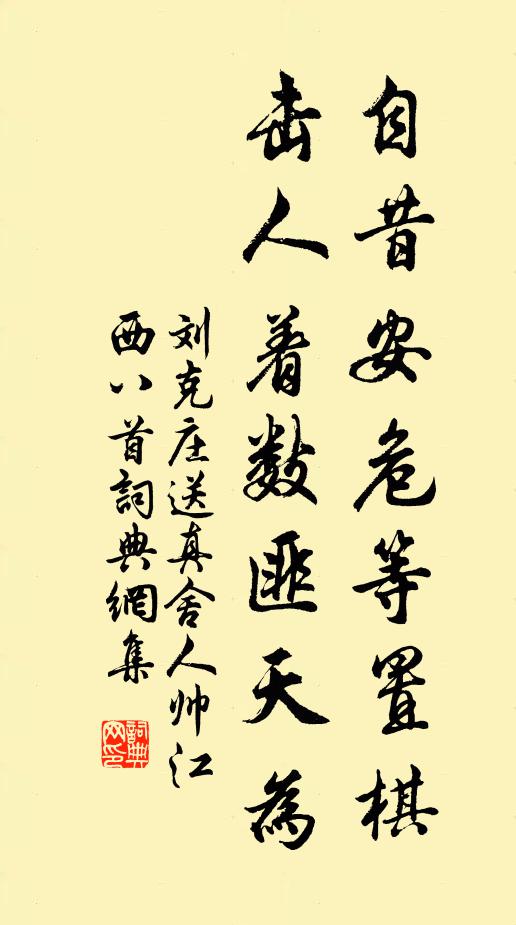 自昔安危等置棋
击人着数匪天為
刘克庄送真舍人帅江
西八首詞典網集
詞典网印